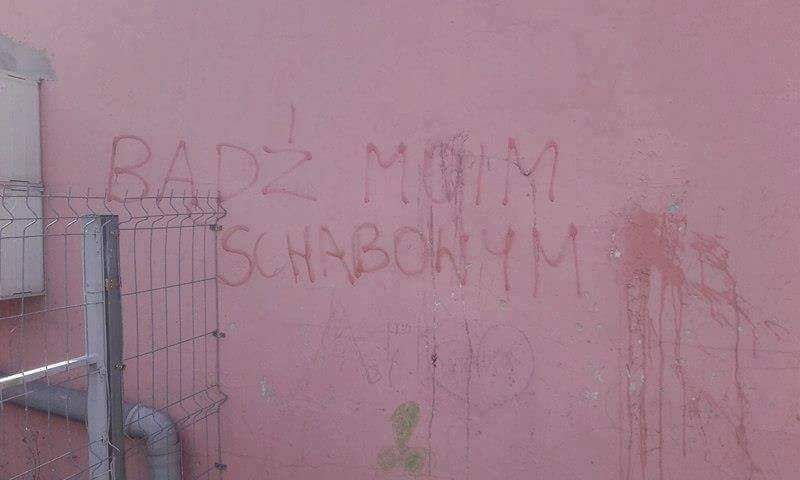 BĄDŹ MOIM
SCHABOWYM